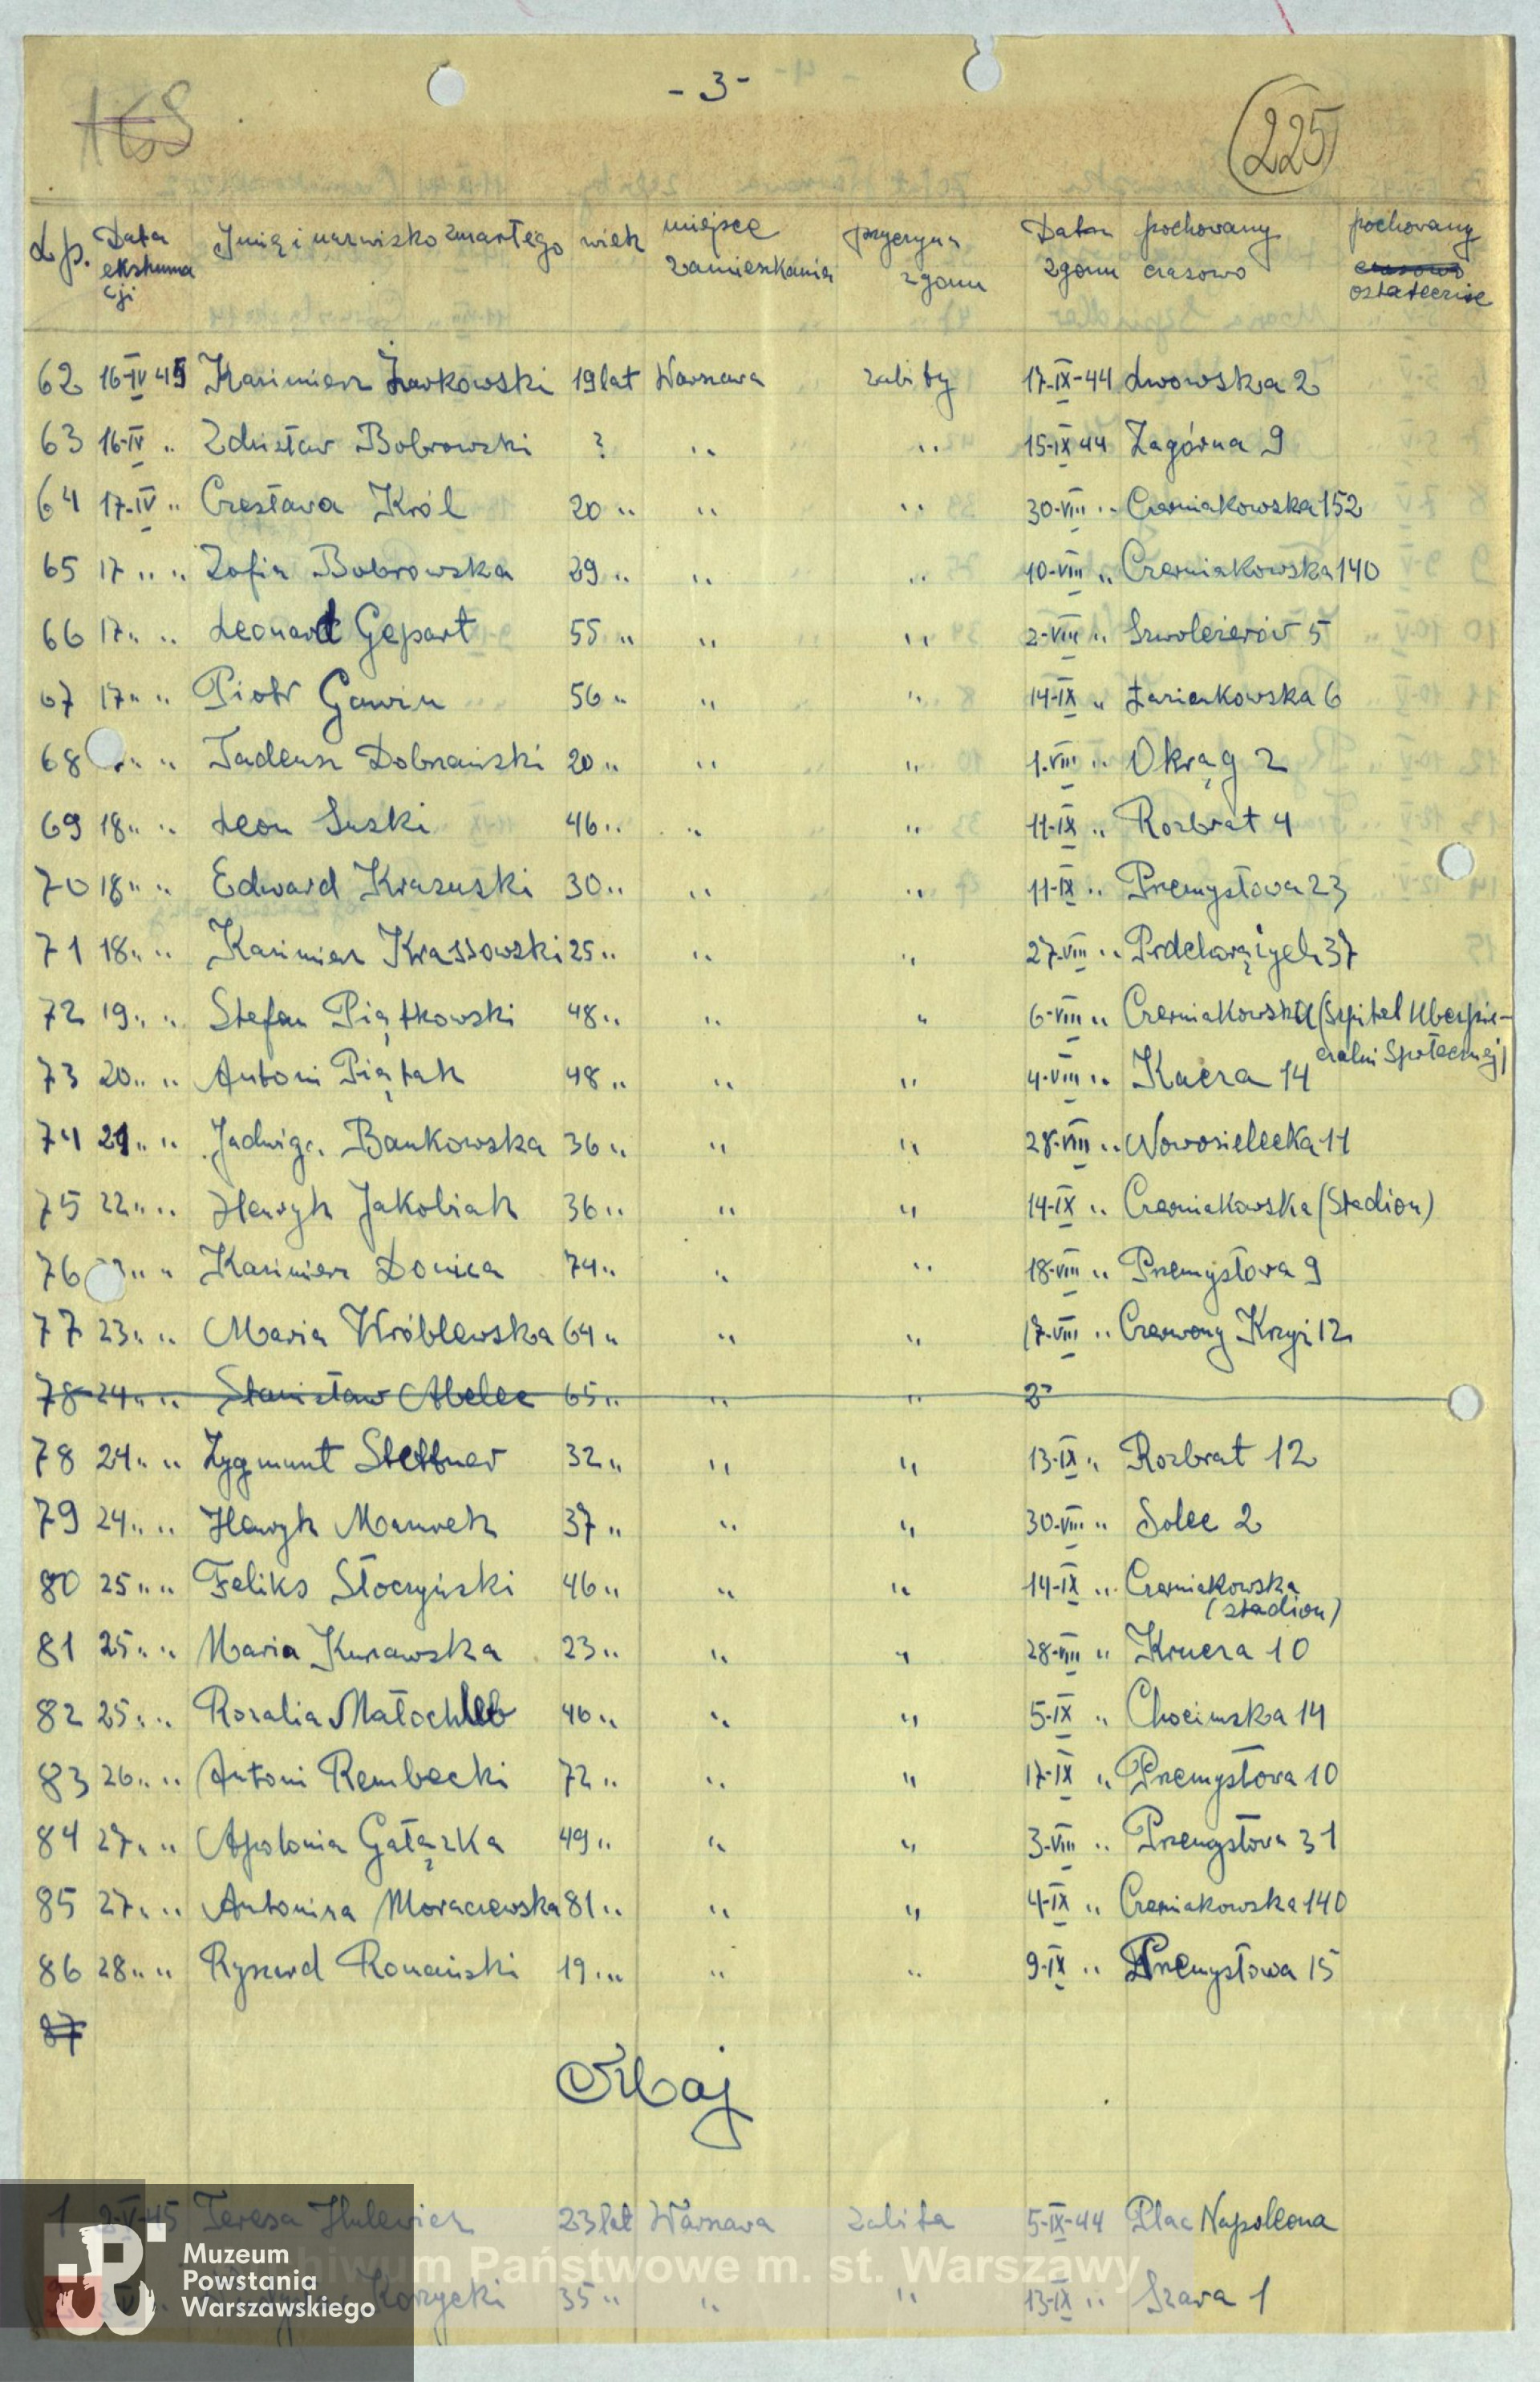 - 3 -
225
L.p. Data ekshumacji Imię i nazwisko zmarłego wiek miejsce zamieszkania przyczyna zgonu Data zgonu pochowany czasowo pochowany czasowo ostatecznie
62 16-IV 45 Kazimierz Żurkowski 19 lat Warszawa zabity 17-IX-44 Lwowska 2
63 16-IV " Zdzisław Bobrowski ? " " 15-IX 44 Zagórna 9
64 17-IV " Czesława Król 20 " " " 30-VIII " Czerniakowska 152
65 17 " " Zofia Bobrowska 29 " " " 10-VIII " Czerniakowska 140
66 17 " " Leonard Gepart 55 " " " 2-VIII " Szwoleżerów 5
67 17 " " Piotr Gawin 56 " " " 14-IX " Łazienkowska 6
68 " " Tadeusz Dobrzański 20 " " " 1-VIII " Okrąg 2
69 18 " " Leon Suski 46 " " " 11-IX " Rozbrat 4
70 18 " " Edward Krasuski 30 " " " 11-IX " Przemysłowa 23
71 18 " " Kazimierz Krassowski 25 " " " 27-VIII " Podchorążych 37
72 19 " " Stefan Piątkowski 48 " " " 6-VIII " Czerniakowska (Szpital Ubezpie-
czalni Społecznej)
73 20 " " Antoni Piątak 48 " " " 4-VIII " Kacza 14
74 21 " " Jadwiga Bankowska 36 " " " 28-VIII " Nowosielecka 11
75 22 " " Henryk Jakobiak 36 " " " 14-IX " Czerniakowska (Stadion)
76 " " Kazimierz Donica 74 " " " 18-VIII " Przemysłowa 9
77 23 " " Maria Wróblewska 64 " " " 17-VIII " Czerwony Krzyż 12
78 24 " " Stanisław Abelec 65 " " " 2
78 24 " " Zygmunt Stettner 32 " " " 13-IX " Rozbrat 12
79 24 " " Henryk Mazurek 37 " " " 30-VIII " Solec 2
80 25 " " Feliks Słoczyński 46 " " " 14-IX " Czerniakowska
(stadion)
81 25 " " Maria Kurawska 23 " " " 28-VIII " Krucza 10
82 25 " " Rozalia Małochleb 40 " " " 5-IX " Chocimska 14
83 26 " " Antoni Rembecki 72 " " " 17-IX " Przemysłowa 10
84 27 " " Apolonia Gałązka 49 " " " 3-VIII " Przemysłowa 31
85 27 " " Antonina Moraczewska 81 " " " 4-IX " Czerniakowska 140
86 28 " " Ryszard Romański 19 " " " 9-IX " Przemysłowa 15
87
Maj
1 2-V-45 Teresa Hulewicz 23 lat Warszawa zabita 5-IX-44 Plac Napoleona
Korzycki 35 " " " 13-IX " Szara 1
Archiwum Państwowe m. st. Warszawy
Muzeum
Powstania
Warszawskiego